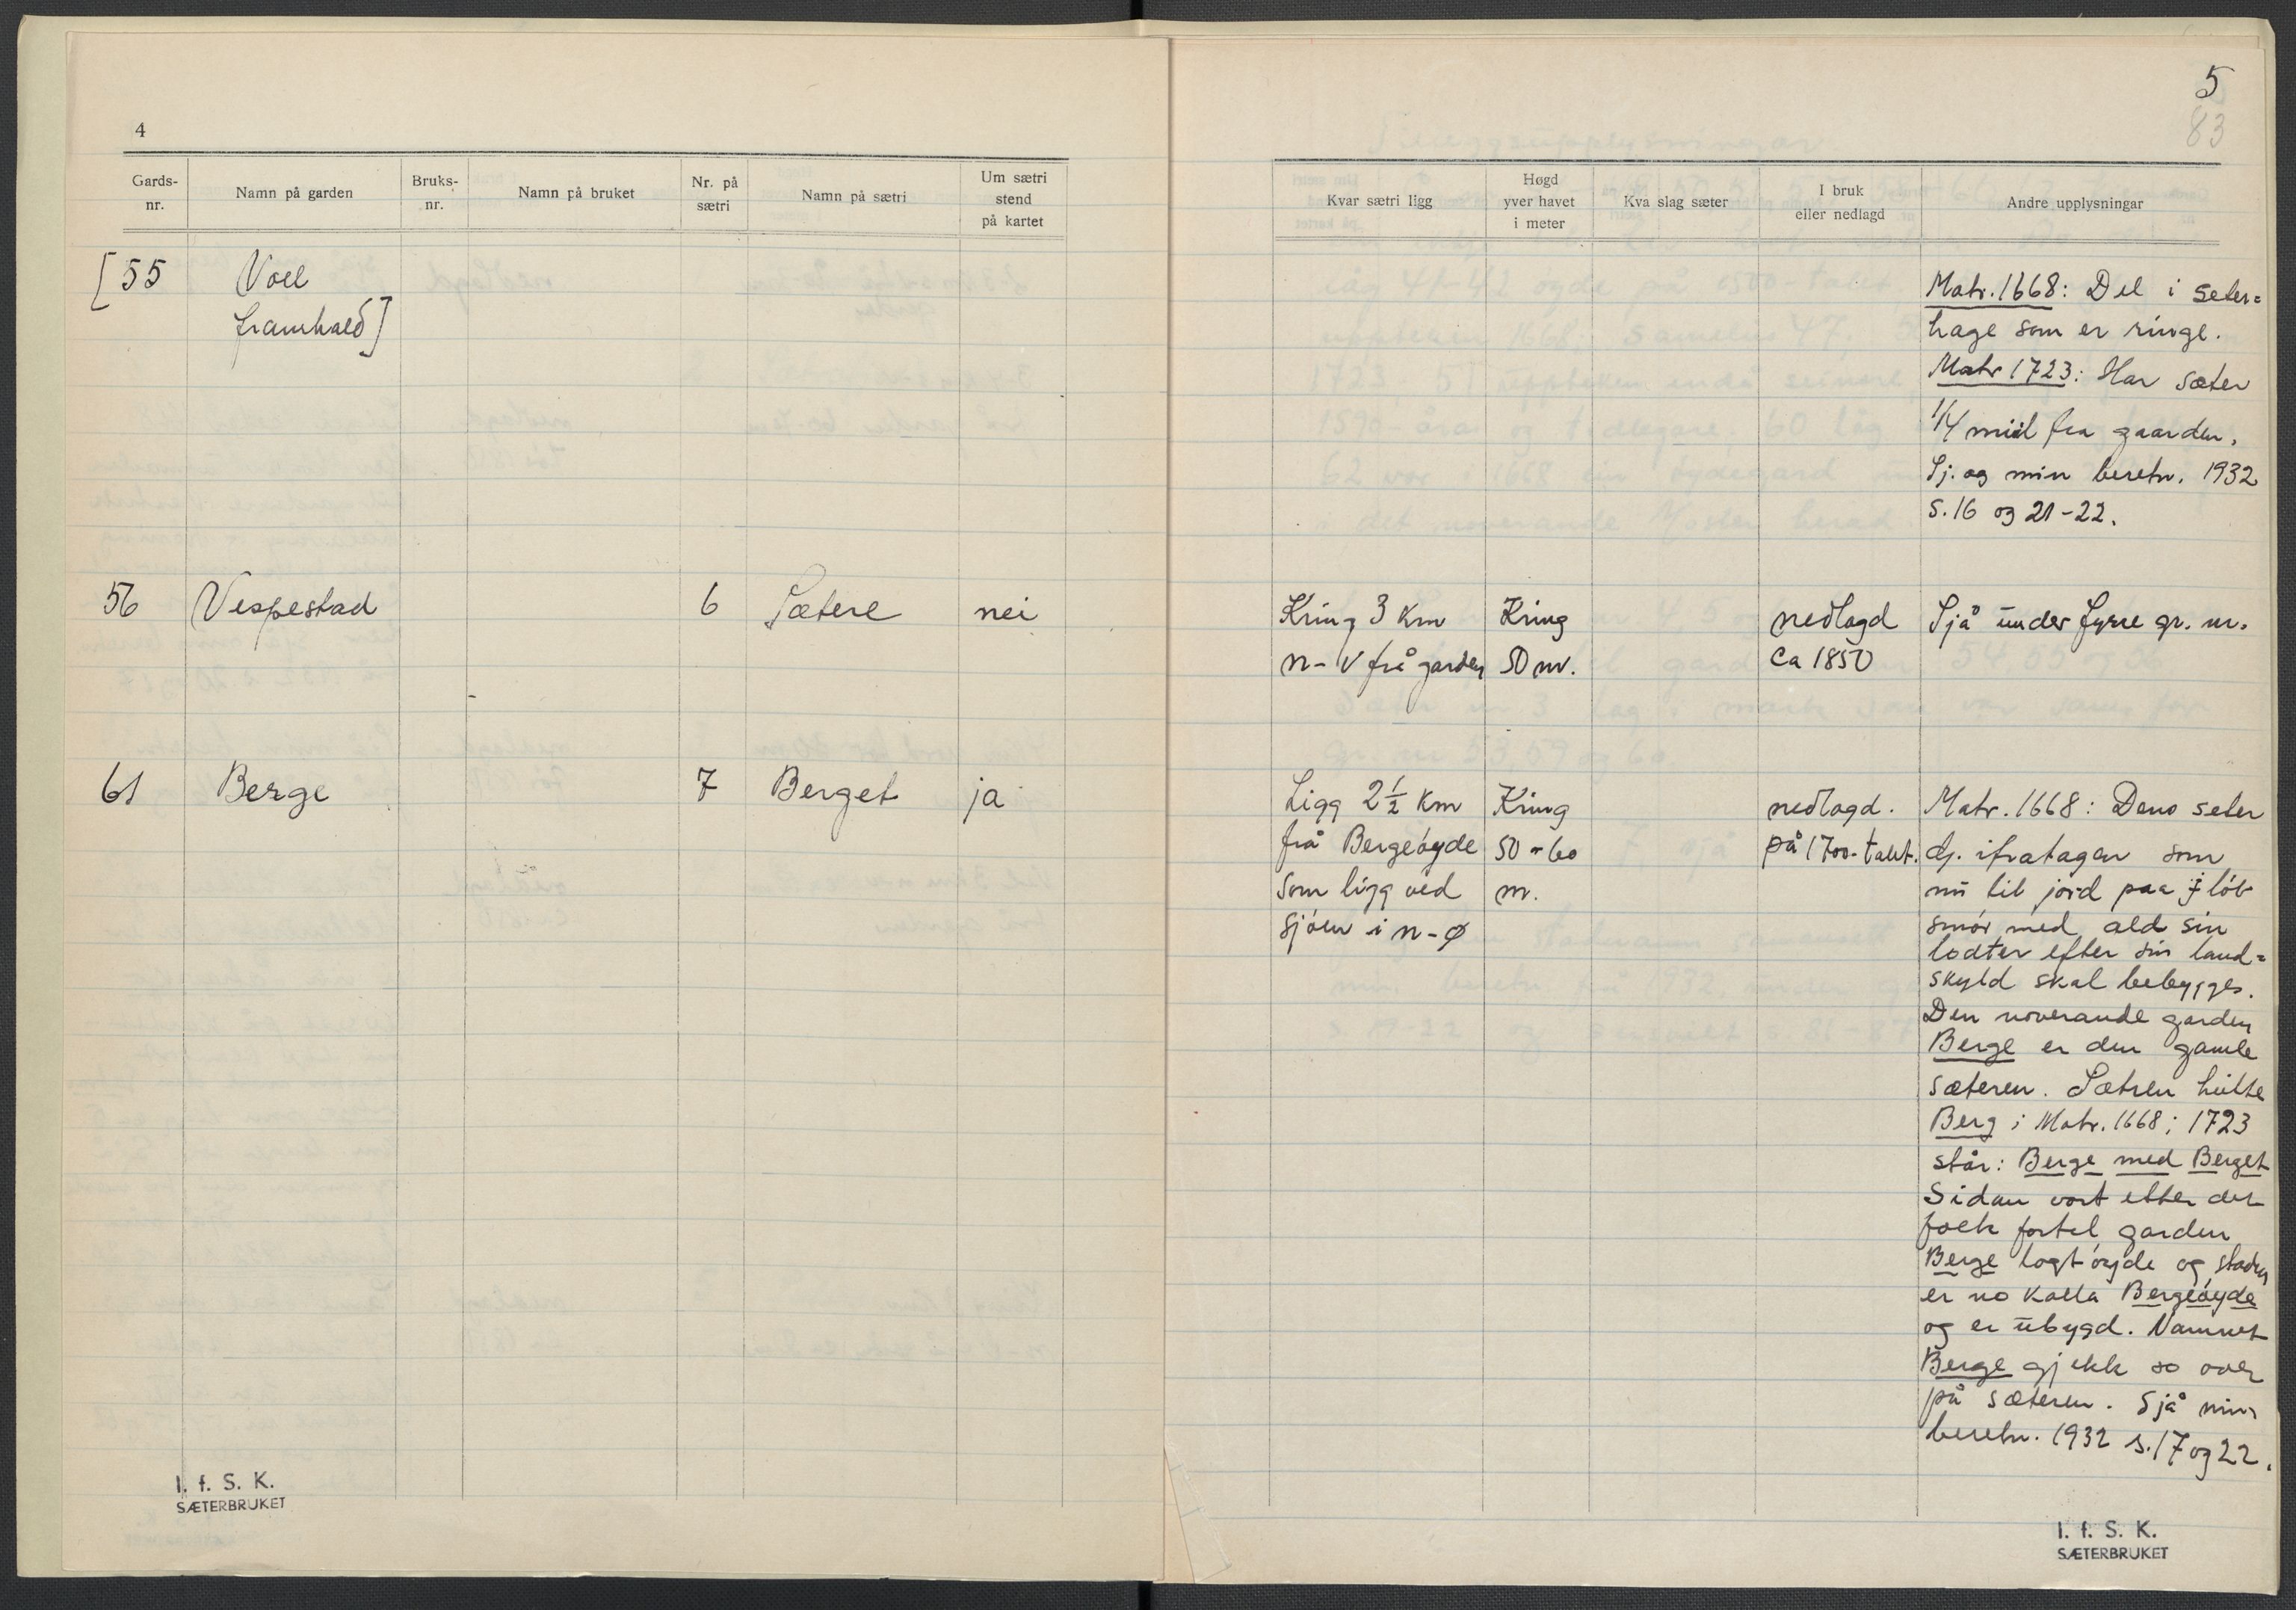 4
Gards-nr. Namn på garden Bruks-nr. Namn på bruket Nr. på sætri Namn på sætri Um sætri stend på kartet
[55 Voll
framhald]
56 Vespestad 6 Sætere nei
61 Berge 7 Berget ja
I. f. S. K.
SÆTERBRUKET
5
83
Kvar sætri ligg Høgd yver havet i meter Kva slag sæter I bruk eller nedlagd Andre upplysningar
Matr. 1668: Del i seter=
hage som er ringe.
Matr 1723: Har sæter
1/4 miil fra gaarden.
Sj. og min beretn. 1932
s. 16 og 21-22.
Kring 3 km Kring nedlagd Sjå under fyrre gr. nr.
n-v frå garden 50 m. ca 1850
Ligg 2 1/2 km Kring nedlagd. Matr. 1668: Dens seter
frå Bergeøyde 50-60 på 1700-talet. ifratagen som
som ligg ved m. nu til jord paa løb
sjøen i n-ø smør med ald sin
lodter efter sin land=
skyld skal bebygges.
Den noverande garden
Berge er den gamle
sæteren. Sætren heitte
Berg i Matr. 1668; 1723
står: Berge med Berget
Sidan vort etter det
folk fortel garden
Berge lagt øyde og staden
er no kalla Bergeøyde
og er ubygd. Namnet
Berge gjekk so over
på sæteren. Sjå min
beretn. 1932 s. 17 og 22.
I. f. S. K.
SÆTERBRUKET